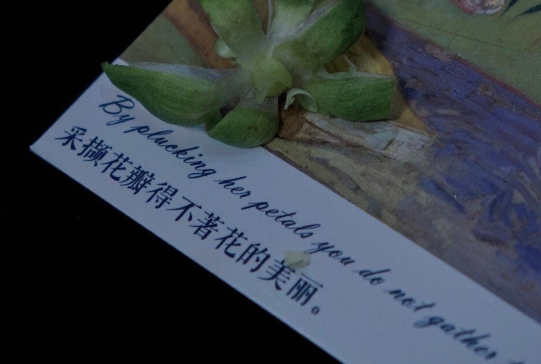 By plucking her petals you do not gather
采撷花瓣得不著花的美丽。